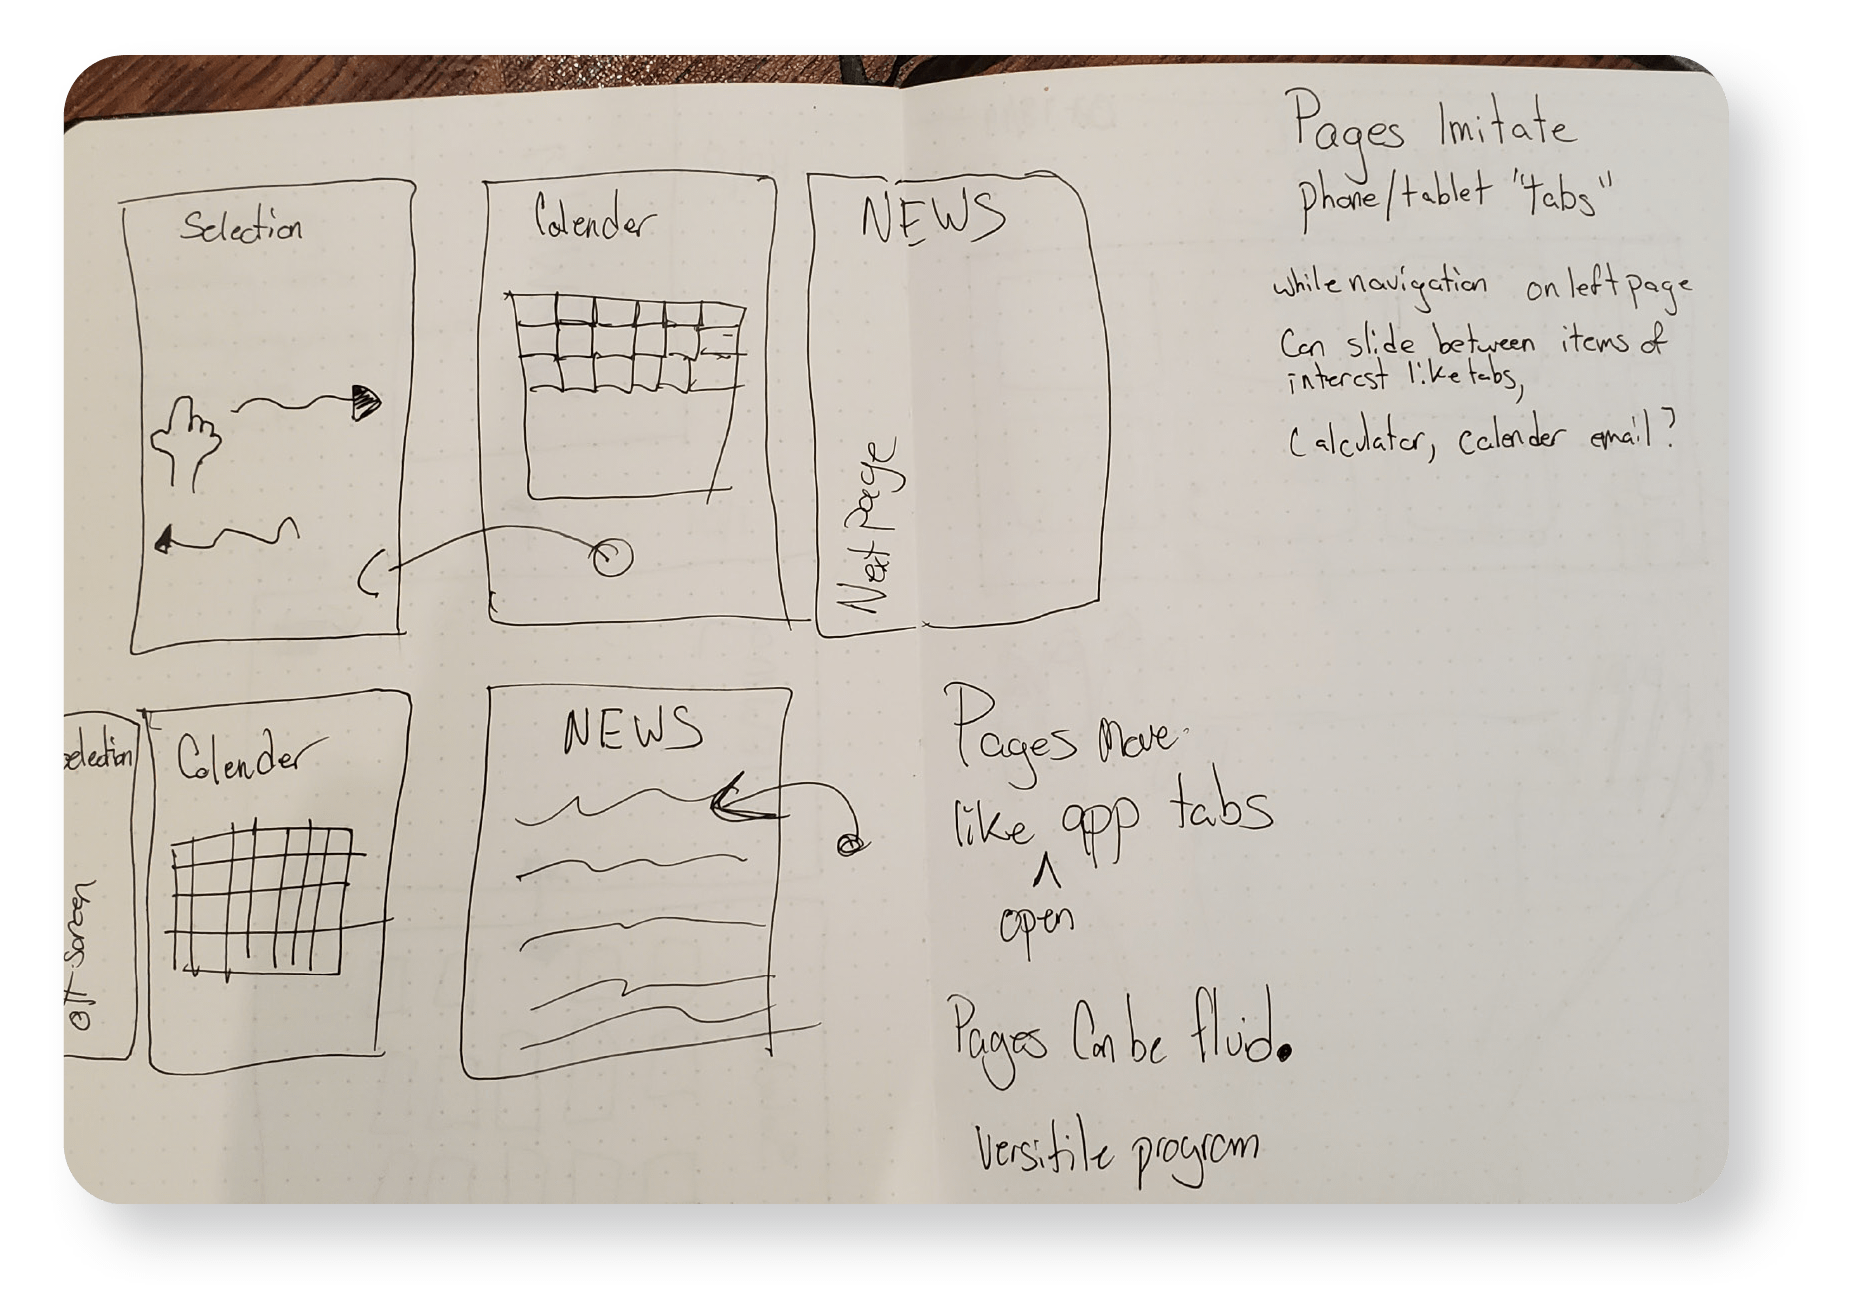 Selection
Calender
NEWS
Next page
Pages Imitate
phone/tablet "tabs"
while navigation on left page
Can slide between items of
interest like tabs,
Calculator, calender email?
selection
Off-screen
Calender
NEWS
Pages Move
like app tabs
^
open
Pages Can be fluid.
Versitile program